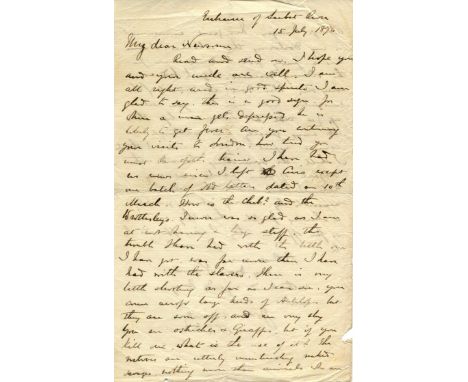 Entrance of Saubat River
15 July 1874
My dear
Read and send on. I hope you
and your uncle are well. I am
all right and in good spirits I am
glad to say, this is a good sign for
when a man gets depressed he is
likely to get fever. Are you continuing
your visits to London, how tired you
must be after, home. I have had
no news since I left Cairo except
one batch of old letters dated on 10th
March. How is the Club? and the
I never was so glad as I am
at not having a large staff. the
trouble I have had with the little one
I have got was far more than I have
had with the slavers. There is very
little shooting as far as I can see, you
come across large herds of Antelope but
they are soon off and are very shy
You see ostriches & Giraffe, but if you
kill one what is the use of it. The
natives are utterly uninteresting naked
nothing more than animals. I am